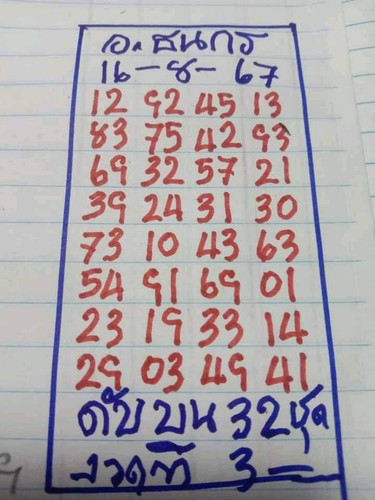 อ.ธนกร
16-8-67
12 92 45 13
83 75 42 93
69 32 57 21
39 24 31 30
73 10 43 63
54 91 69 01
23 19 33 14
29 03 49 41
ดับบน 32 ชุด
งวดที่ 3